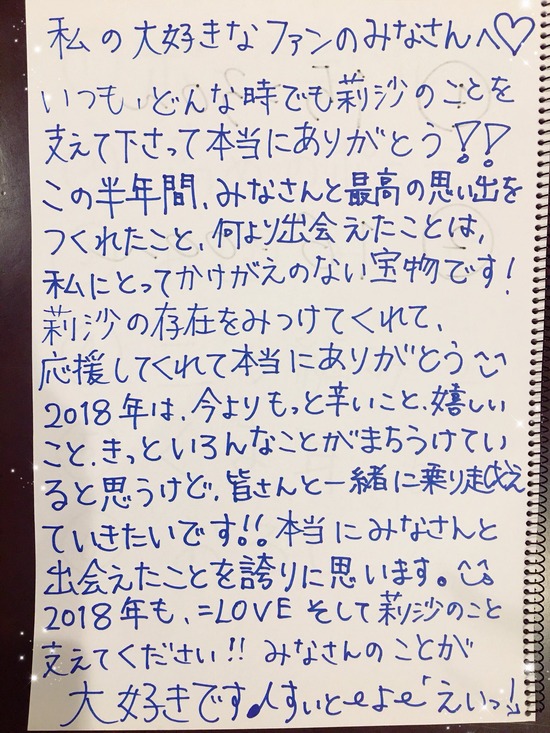 私の大好きなファンのみなさんへ♡
いつも、どんな時でも莉沙のことを
支えて下さって本当にありがとう!!
この半年間、みなさんと最高の思い出を
つくれたこと、何より出会えたことは、
私にとってかけがえのない宝物です!
莉沙の存在をみつけてくれて、
応援してくれて本当にありがとう
2018年は、今よりもっと辛いこと、嬉しい
こと、きっといろんなことがまちうけてい
ると思うけど、皆さんと一緒に乗り越え
ていきたいです!!本当にみなさんと
出会えたことを誇りに思います。
2018年も、=LOVE そして莉沙のこと
支えてください!! みなさんのことが
大好きです♪すぃと〜よ〜 えいっ!